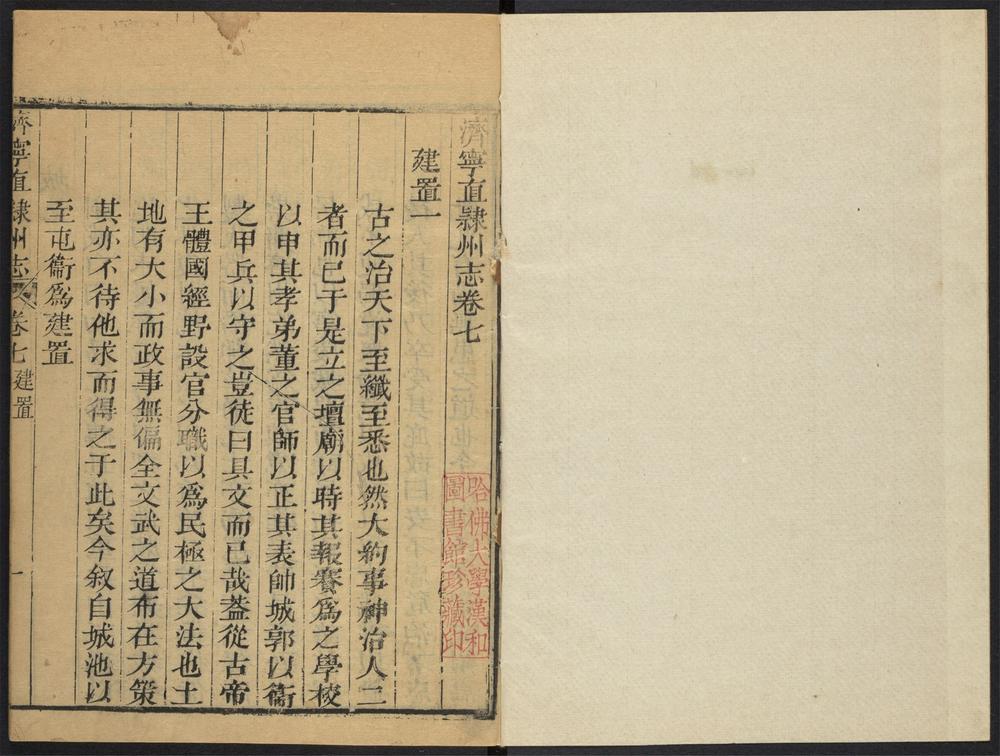 濟寧直隷州志卷七
建置一
古之治天下至纖至悉也然大約事神治人二
者而已于是立之壇廟以時其報賽爲之學校
以申其孝弟董之官師以正其表帥城郭以衞
之甲兵以守之豈徒曰具文而已哉葢從古帝
王體國經野設官分職以爲民極之大法也土
地有大小而政事無偏全文武之道布在方策
其亦不待他求而得之于此矣今敘自城池以
至屯衞爲建置
濟寧直隷州志
卷七
建置
一
哈佛大學漢和
圖書館珍藏印